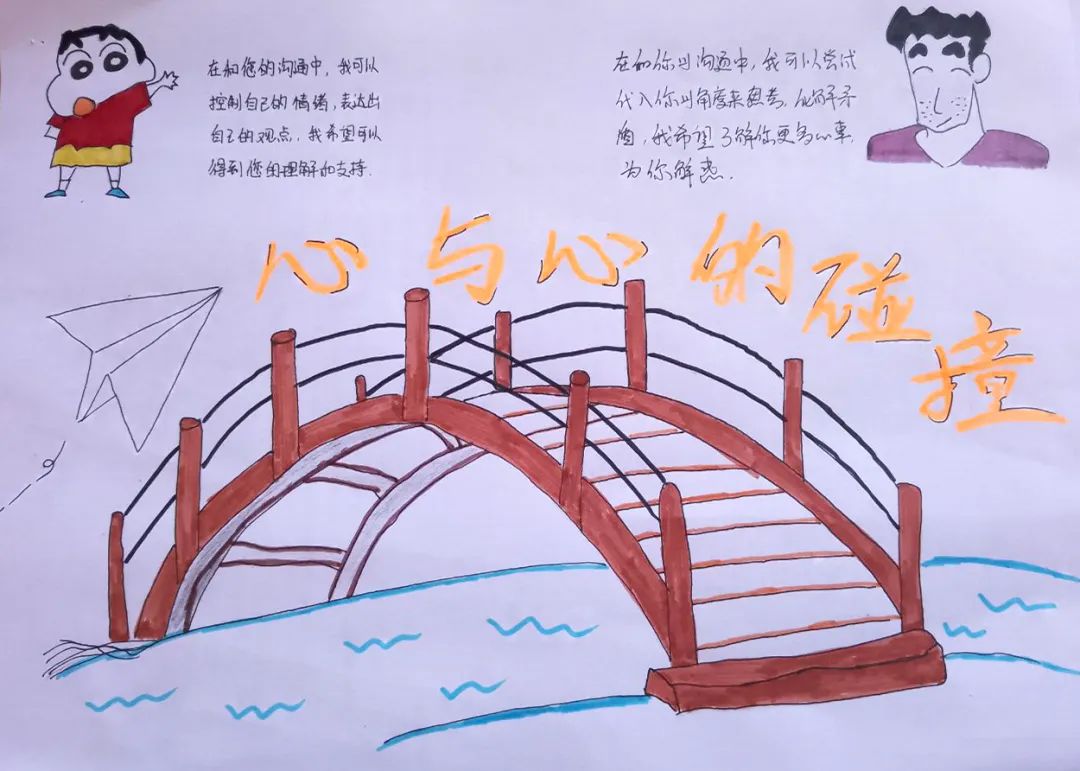 在和您的沟通中，我可以
控制自己的情绪，表达出
自己的观点，我希望可以
得到您的理解和支持.
在和你的沟通中，我可以尝试
代入你的角度来思考，化解矛
盾，我希望了解你更多心事，
为你解惑.
心与心的碰撞